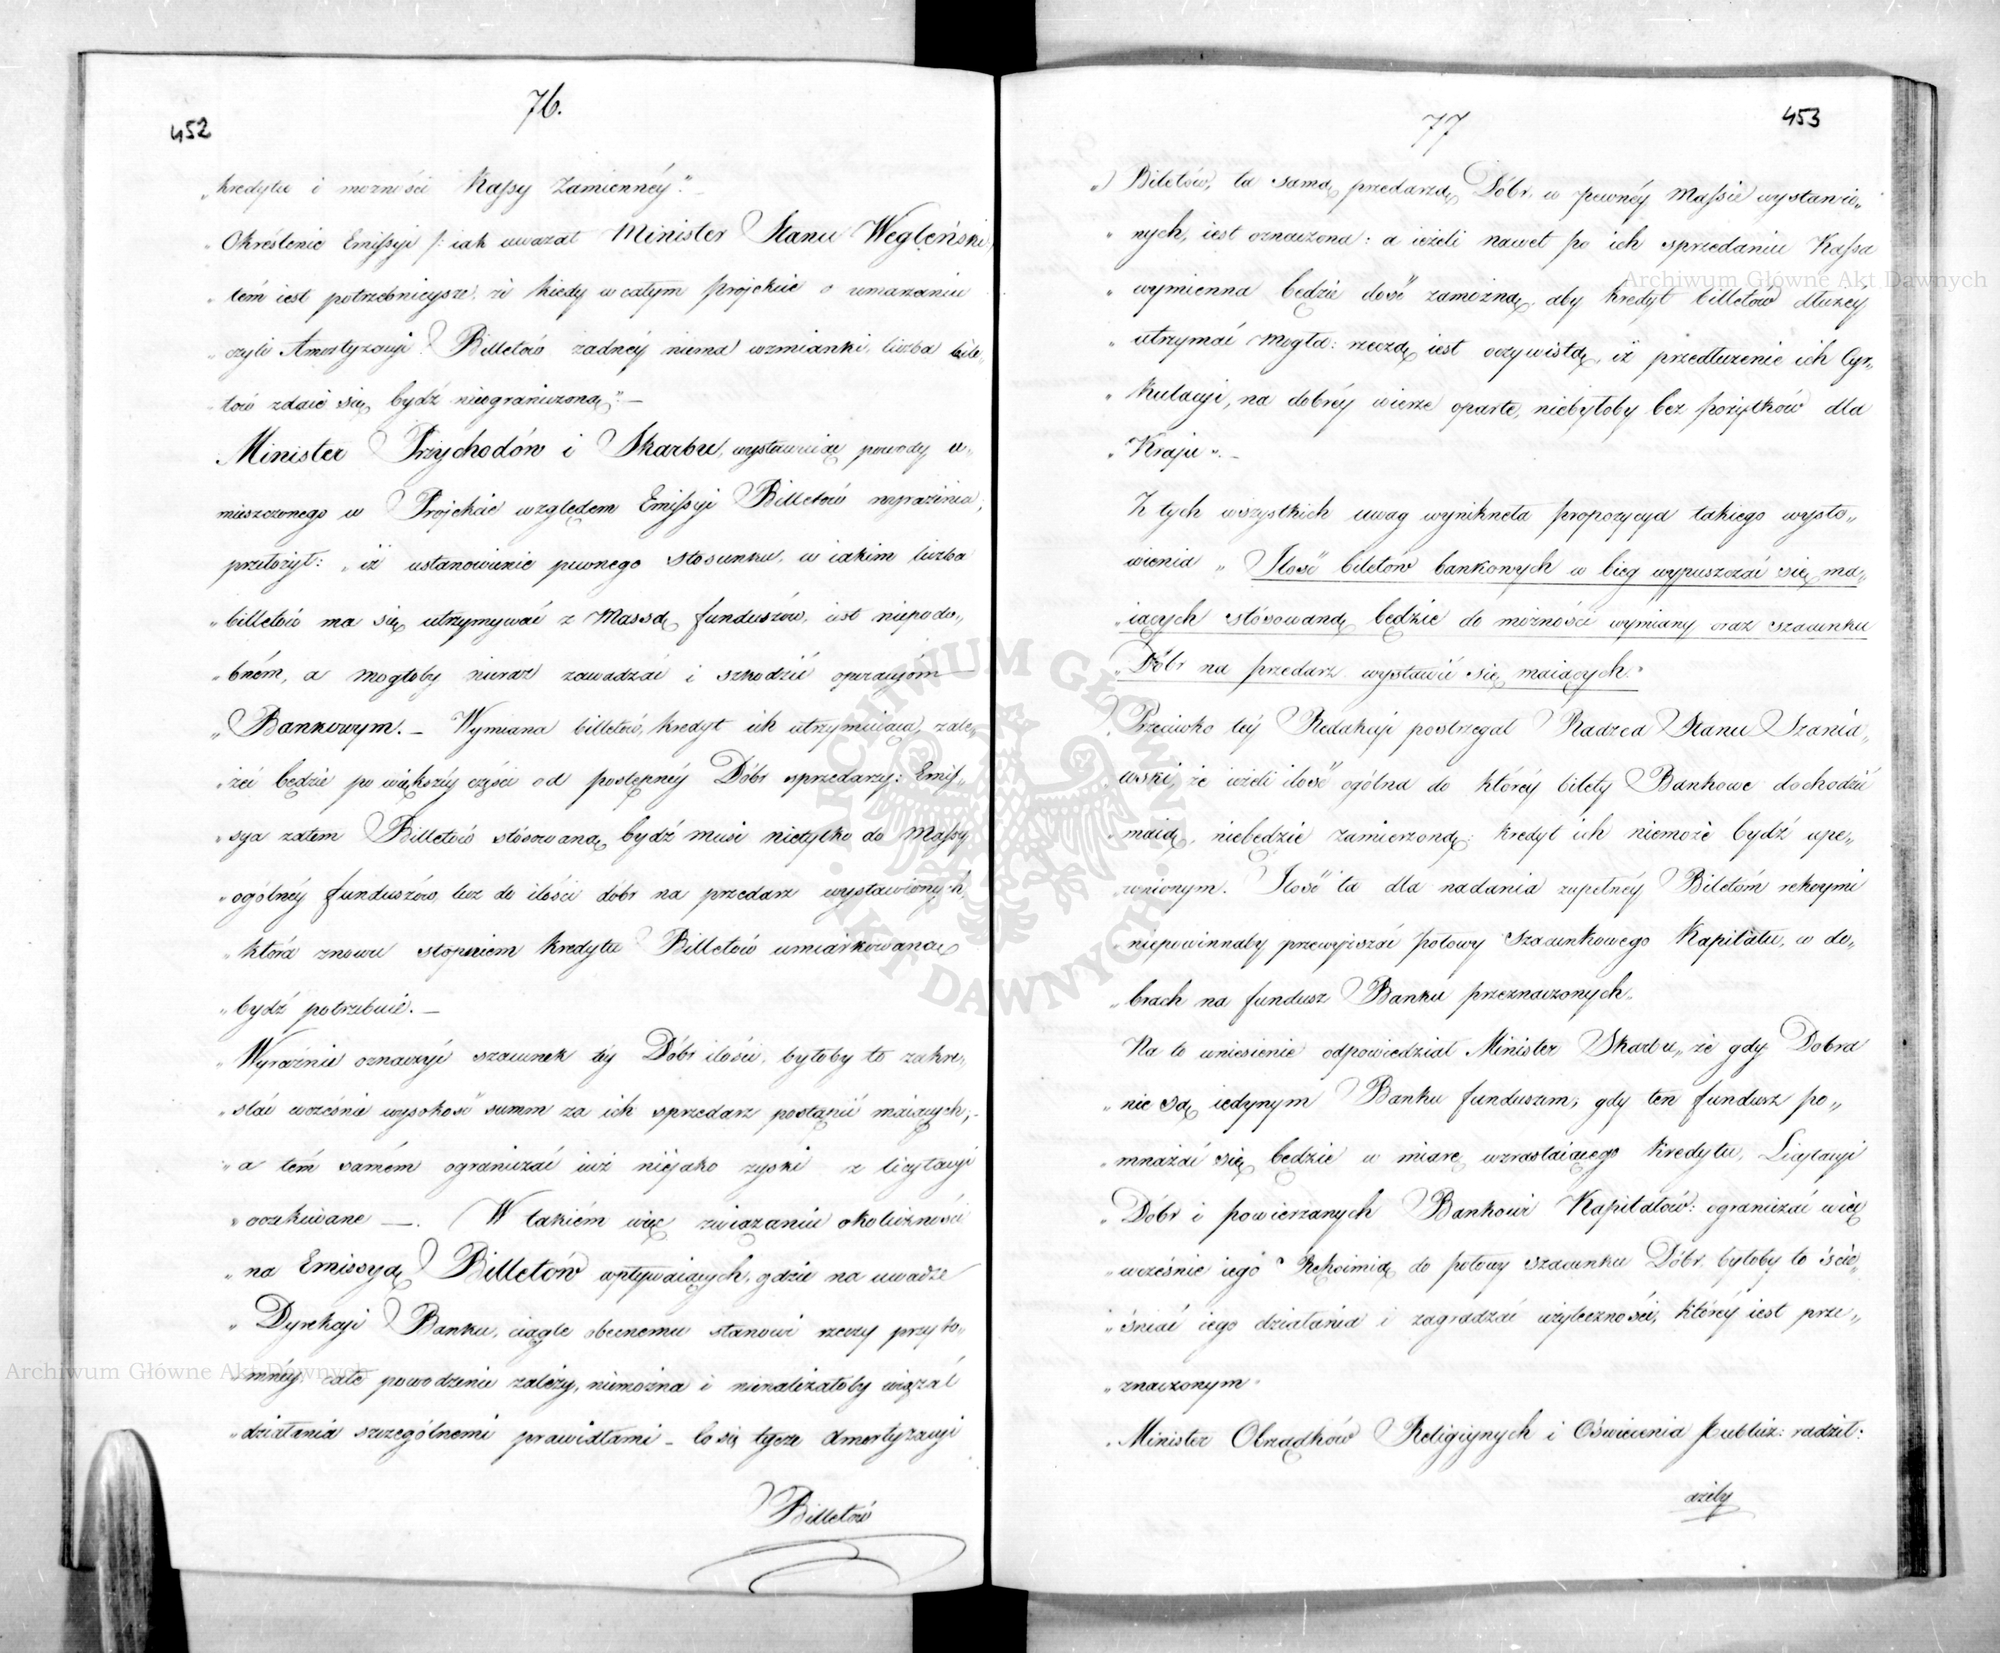 76.
452
„kredytu i możności Kassy Zamiennéy”. —
„Określenie Emissyi /: iak uważał Minister Stanu Węgleński,
„tém iest potrzebnieysze, że kiedy w całym projekcie o umarzaniu
„czyli Amortyzacyi Billetów żadnéy niema wzmianki, liczba bile-
„tów zdaie się bydź nieograniczoną”. —
Minister Przychodów i Skarbu, wystawuiąc powody u-
mieszczonego w Projekcie względem Emissyi Billetów wyrażenia,
przełożył: „iż ustanowienie pewnego stosunku, w iakim liczba
„billetów ma się utrzymywać z Massą funduszów, iest niepodo-
„bném, a mogłoby nieraz zawadzać i szkodzić operacyóm
„Bankowym. — Wymiana billetów, kredyt ich utrzymuiąca, zale-
„żeć będzie po większéy części od postępnéy Dóbr sprzedarzy: Emis-
„sya zatem Billetów stósowaną bydź musi nietylko do Massy
„ogólnéy funduszów, lecz do ilości dóbr na przedarz wystawionych,
„która znowu stopniem kredytu Billetów umiarkowaną
„bydź potrzebuie. —
„Wyraźnie oznaczyć szacunek téy Dóbr ilości, byłoby to zakre-
„ślać wcześnie wysokość summ za ich sprzedarz postąpić maiących,
„a tém samém ograniczać iuż nieiako zyski z licytacyi
„oczekiwane —. W takiém więc związaniu okoliczności
„na Emissyą Billetów wpływaiących, gdzie na uwadze
„Dyrekcyi Banku, ciągle obecnemu stanowi rzeczy przyto-
„mnéy, całe powodzenie zależy, niemożna i nienależałoby wiązać
„działania szczególnemi prawidłami — Co się tycze Amortyzacyi
Billetów
77
453
„Biletów, ta samą przedarzą Dóbr, w pewnéy Massie wystawio„
„nych, iest oznaczona: a ieżeli nawet po ich sprzedaniu Kassa
„wymienna będzie dość zamożną, aby kredyt billetów dłużéy
„utrzymać mogła: rzeczą iest oczywistą, iż przedłużenie ich Cyr-
„kulacyi, na dobréy wierze oparte, niebyłoby bez pożytków dla
„Kraju”. —
Z tych wszystkich uwag wyniknęła propozycya takiego wysło„
wienia „Ilość biletów bankowych w bieg wypuszczać się ma„
„iących stósowaną będzie do możności wymiany oraz szacunku
„Dóbr na przedarz wystawić się maiących.”
Przeciwko téy Redakcyi postrzegał Radzca Stanu Szania„
wski, że ieżeli ilość ogólna do któréy bilety Bankowe dochodzić
„maią, niebędzie zamierzoną; kredyt ich niemoże bydź upe„
„wnionym. Ilość ta dla nadania zupełnéy Biletóm rękoymi
„niepowinnaby przewyższać połowy szacunkowego Kapitału, w do„
„brach na fundusz Banku przeznaczonych„
Na to wniesienie odpowiedział Minister Skarbu „że gdy Dobra
„nie są iedynym Banku funduszem; gdy ten fundusz po„
„mnażać się będzie w miarę wzrastaiącego kredytu, Licytacyi
„Dóbr i powierzanych Bankowi Kapitałów: ograniczać więc
„wcześnie iego Rękoimią do połowy szacunku Dóbr, byłoby to ście„
„śniać iego działania i zagradzać użyteczności, któréy iest prze„
„znaczonym”
Minister Obrządków Religiynych i Oświecenia Publicz: radził:
ażeby
Archiwum Główne Akt Dawnych
Archiwum Główne Akt Dawnych
ARCHIWUM GŁÓWNE AKT DAWNYCH